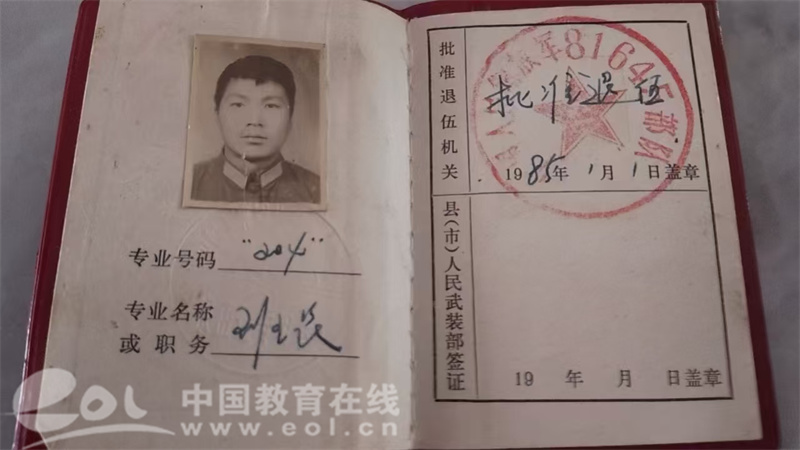 专业号码 "204"
专业名称
或职务 班长
批准退伍机关
批准退伍
1985年1月1日盖章
县(市)人民武装部签证
19 年 月 日盖章
81645部队
eol 中国教育在线
www.eol.cn